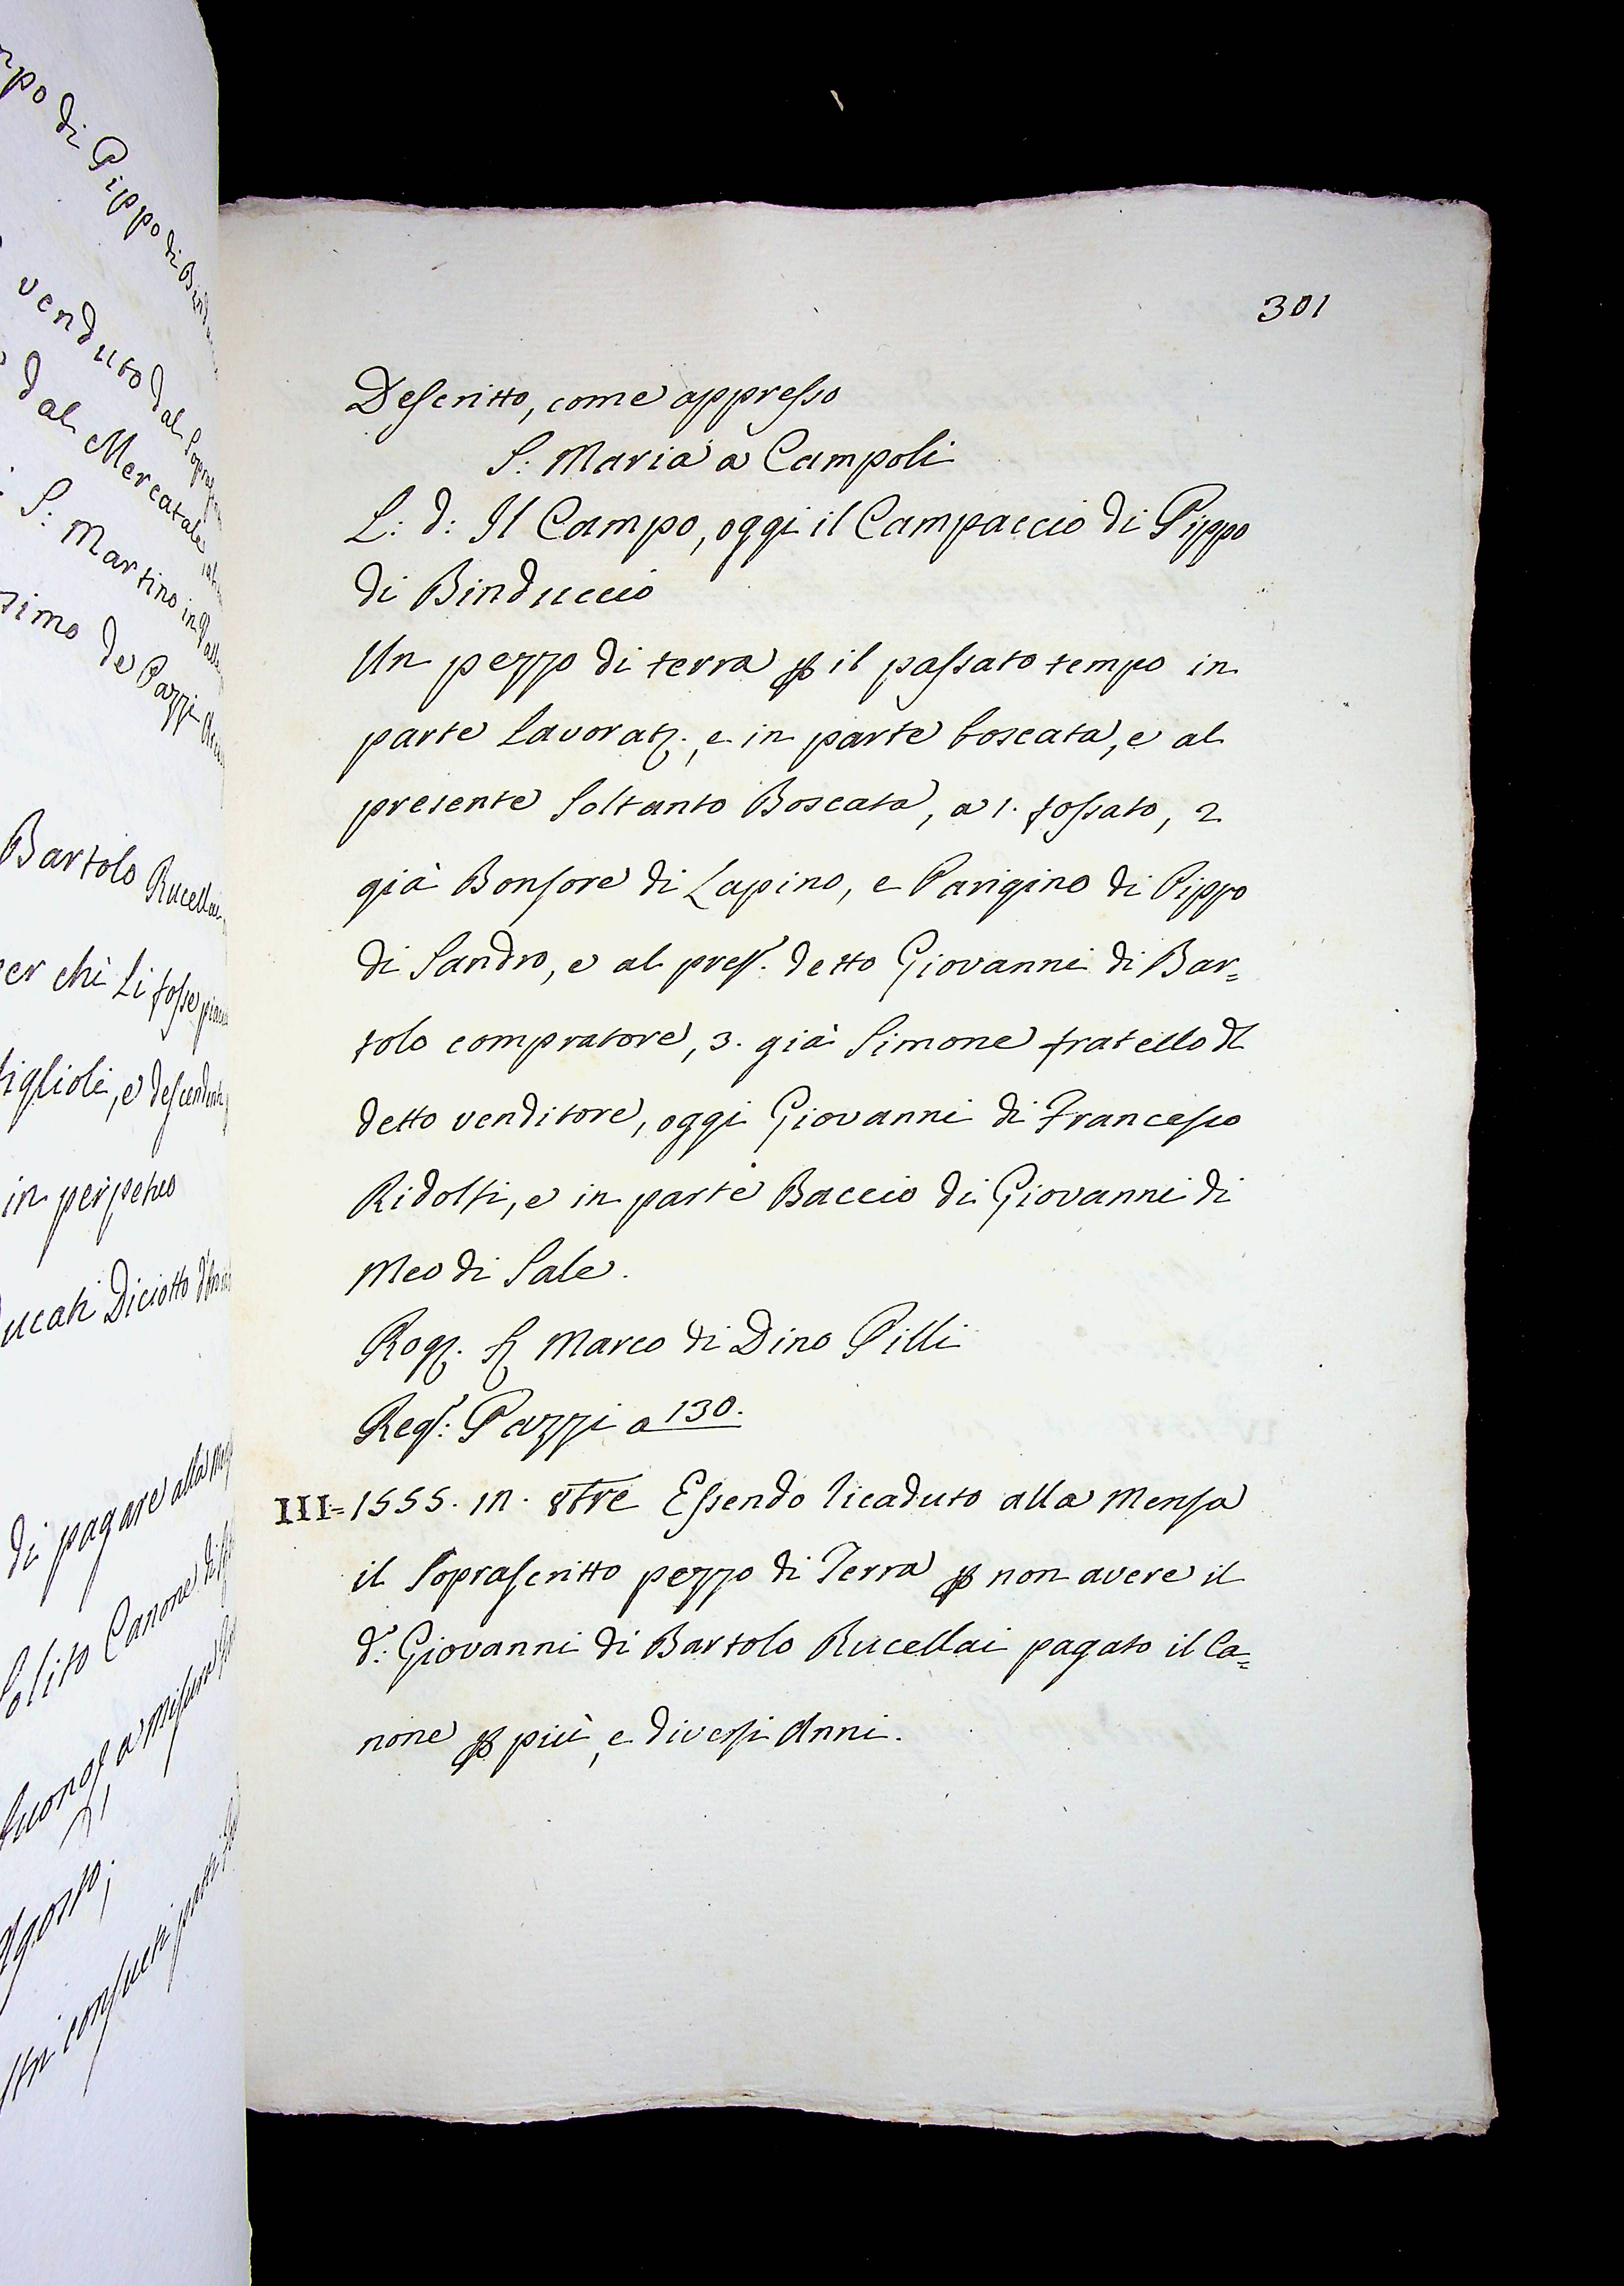 po di Pippo di Bind
venduto dal Sopra
dal Mercatale
S: Martino in Vall
simo de Pazzi
Bartolo Rucellai
er chi li fosse
figlioli, e descendenti
in perpetuo
ucati Diciotto
di pagare alla
Solito Canone
a misura
Agosto;
consueti patti
301
Descritto, come appresso
S: Maria a Campoli
L: d: Il Campo, oggi il Campaccio di Pippo
di Binduccio
Un pezzo di terra ꝑ il passato tempo in
parte Lavorat:, e in parte boscata, e al
presente Soltanto Boscata, a 1. fossato, 2
già Bonsore di Lapino, e Parigino di Pippo
di Sandro, e al pres. detto Giovanni di Bar=
tolo compratore, 3. già Simone fratello dl
detto venditore, oggi Giovanni di Francesco
Ridolfi, e in parte Baccio di Giovanni di
Meo di Sale.
Rog. S Marco di Dino Pilli
Regº: Pazzi a 130.
III= 1555. in 8bre Essendo ricaduto alla Mensa
il Soprascritto pezzo di Terra ꝑ non avere il
dº: Giovanni di Bartolo Rucellai pagato il Ca=
none ꝑ più, e diversi Anni.